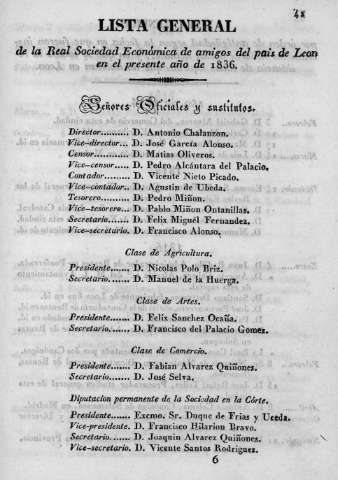 48
LISTA GENERAL
de la Real Sociedad Económica de amigos del pais de Leon
en el presente año de 1836.
Señores Oficiales y sustitutos.
Director.......... D. Antonio Chalanzon.
Vice-director... D. José García Alonso.
Censor........... D. Matias Oliveros.
Vice-censor..... D. Pedro Alcántara del Palacio.
Contador........ D. Vicente Nieto Picado.
Vice-contador.. D. Agustin de Ubeda.
Tesorero......... D. Pedro Miñon.
Vice-tesorero... D. Pablo Miñon Ontanillas.
Secretario....... D. Felix Miguél Fernandez.
Vice-secretario. D. Francisco Alonso.
Clase de Agricultura.
Presidente...... D. Nicolas Polo Briz.
Secretario....... D. Manuel de la Huerga.
Clase de Artes.
Presidente...... D. Felix Sanchez Ocaña.
Secretario....... D. Francisco del Palacio Gomez.
Clase de Comercio.
Presidente....... D. Fabian Alvarez Quiñones.
Secretario....... D. José Selva.
Diputacion permanente de la Sociedad en la Córte.
Presidente...... Excmo. Sr. Duque de Frias y Uceda.
Vice-presidente. D. Francisco Hilarion Bravo.
Secretario....... D. Joaquin Alvarez Quiñones.
Vice-secretario. D. Vicente Santos Rodriguez.
6